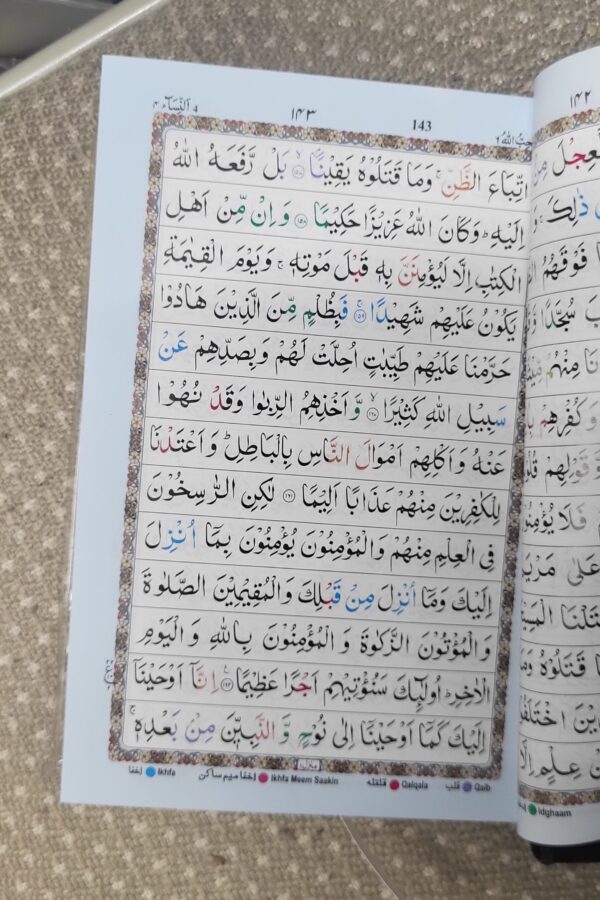 لَا يُحِبُّ اللهُ ٦ 143 ١٤٣ 4 اَلنِّسَآء ٤
اتِّبَاعَ الظَّنِّ ۚ وَمَا قَتَلُوْهُ يَقِيْنًۢا ۙ﴿۱۵۷﴾ بَلْ رَّفَعَهُ اللهُ
اِلَيْهِ ؕ وَكَانَ اللهُ عَزِيْزًا حَكِيْمًا ﴿۱۵۸﴾ وَ اِنْ مِّنْ اَهْلِ
الْكِتٰبِ اِلَّا لَيُؤْمِنَنَّ بِهٖ قَبْلَ مَوْتِهٖ ۚ وَيَوْمَ الْقِيٰمَةِ
يَكُوْنُ عَلَيْهِمْ شَهِيْدًا ۚ﴿۱۵۹﴾ فَبِظُلْمٍ مِّنَ الَّذِيْنَ هَادُوْا
حَرَّمْنَا عَلَيْهِمْ طَيِّبٰتٍ اُحِلَّتْ لَهُمْ وَبِصَدِّهِمْ عَنْ
سَبِيْلِ اللهِ كَثِيْرًا ۙ﴿۱۶۰﴾ وَّ اَخْذِهِمُ الرِّبٰوا وَقَدْ نُهُوْا
عَنْهُ وَاَكْلِهِمْ اَمْوَالَ النَّاسِ بِالْبَاطِلِ ؕ وَاَعْتَدْنَا
لِلْكٰفِرِيْنَ مِنْهُمْ عَذَابًا اَلِيْمًا ﴿۱۶۱﴾ لٰكِنِ الرّٰسِخُوْنَ
فِي الْعِلْمِ مِنْهُمْ وَالْمُؤْمِنُوْنَ يُؤْمِنُوْنَ بِمَاۤ اُنْزِلَ
اِلَيْكَ وَمَاۤ اُنْزِلَ مِنْ قَبْلِكَ وَالْمُقِيْمِيْنَ الصَّلٰوةَ
وَالْمُؤْتُوْنَ الزَّكٰوةَ وَ الْمُؤْمِنُوْنَ بِاللهِ وَ الْيَوْمِ
الْاٰخِرِ ؕ اُولٰٓئِكَ سَنُؤْتِيْهِمْ اَجْرًا عَظِيْمًا ﴿۱۶۲﴾ اِنَّاۤ اَوْحَيْنَاۤ
اِلَيْكَ كَمَاۤ اَوْحَيْنَاۤ اِلٰى نُوْحٍ وَّ النَّبِيّٖنَ مِنْۢ بَعْدِهٖ ۚ
اِخفا Ikhfa اِخفا میم ساکن Ikhfa Meem Saakin قلقله Qalqala قلب Qalb
١٤٢
الْعِجْلَ مِنْۢ
ذٰلِكَ ۚ
فَوْقَهُمُ
سُجَّدًا
مِنْهُمْ
وَكُفْرِهِمْ
قَوْلِهِمْ
فَلَا يُؤْمِنُوْنَ
عَلٰى
قَتَلْنَا
قَتَلُوْهُ
اخْتَلَفُوْا
عِلْمٍ اِلَّا
idghaam